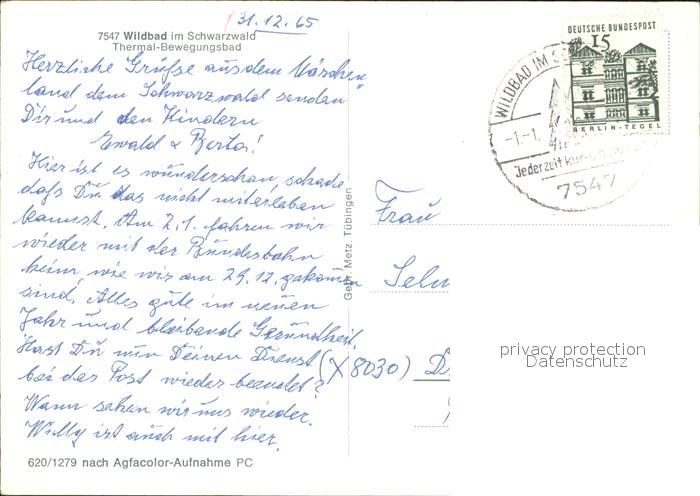 31.12.65
7547 Wildbad im Schwarzwald
Thermal-Bewegungsbad
Herzliche Grüße aus dem Märchen
land dem Schwarzwald senden
Dir und den Kindern
Ewald & Berta!
Hier ist es wunderschön, schade
daß Du das nicht miterleben
kannst. Am 2.1. fahren wir
wieder mit der Bundesbahn
heim, wie wir am 29.12. gekommen
sind. Alles gute im neuen
Jahr und bleibende Gesundheit.
Hast Du nun Deinen Dienst
bei der Post wieder beendet?
Wann sehen wir uns wieder.
Willy ist auch mit hier.
620/1279 nach Agfacolor-Aufnahme PC
Gebr. Metz, Tübingen
DEUTSCHE BUNDESPOST
15
BERLIN-TEGEL
WILDBAD IM
-1.-1.
Jederzeit Kur
7547
Frau
(X8030)
privacy protection
Datenschutz